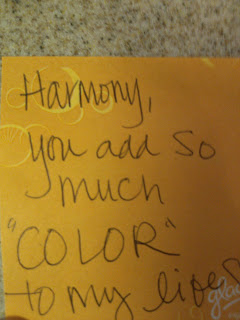 Harmony,
you add so
much
"COLOR"
to my life